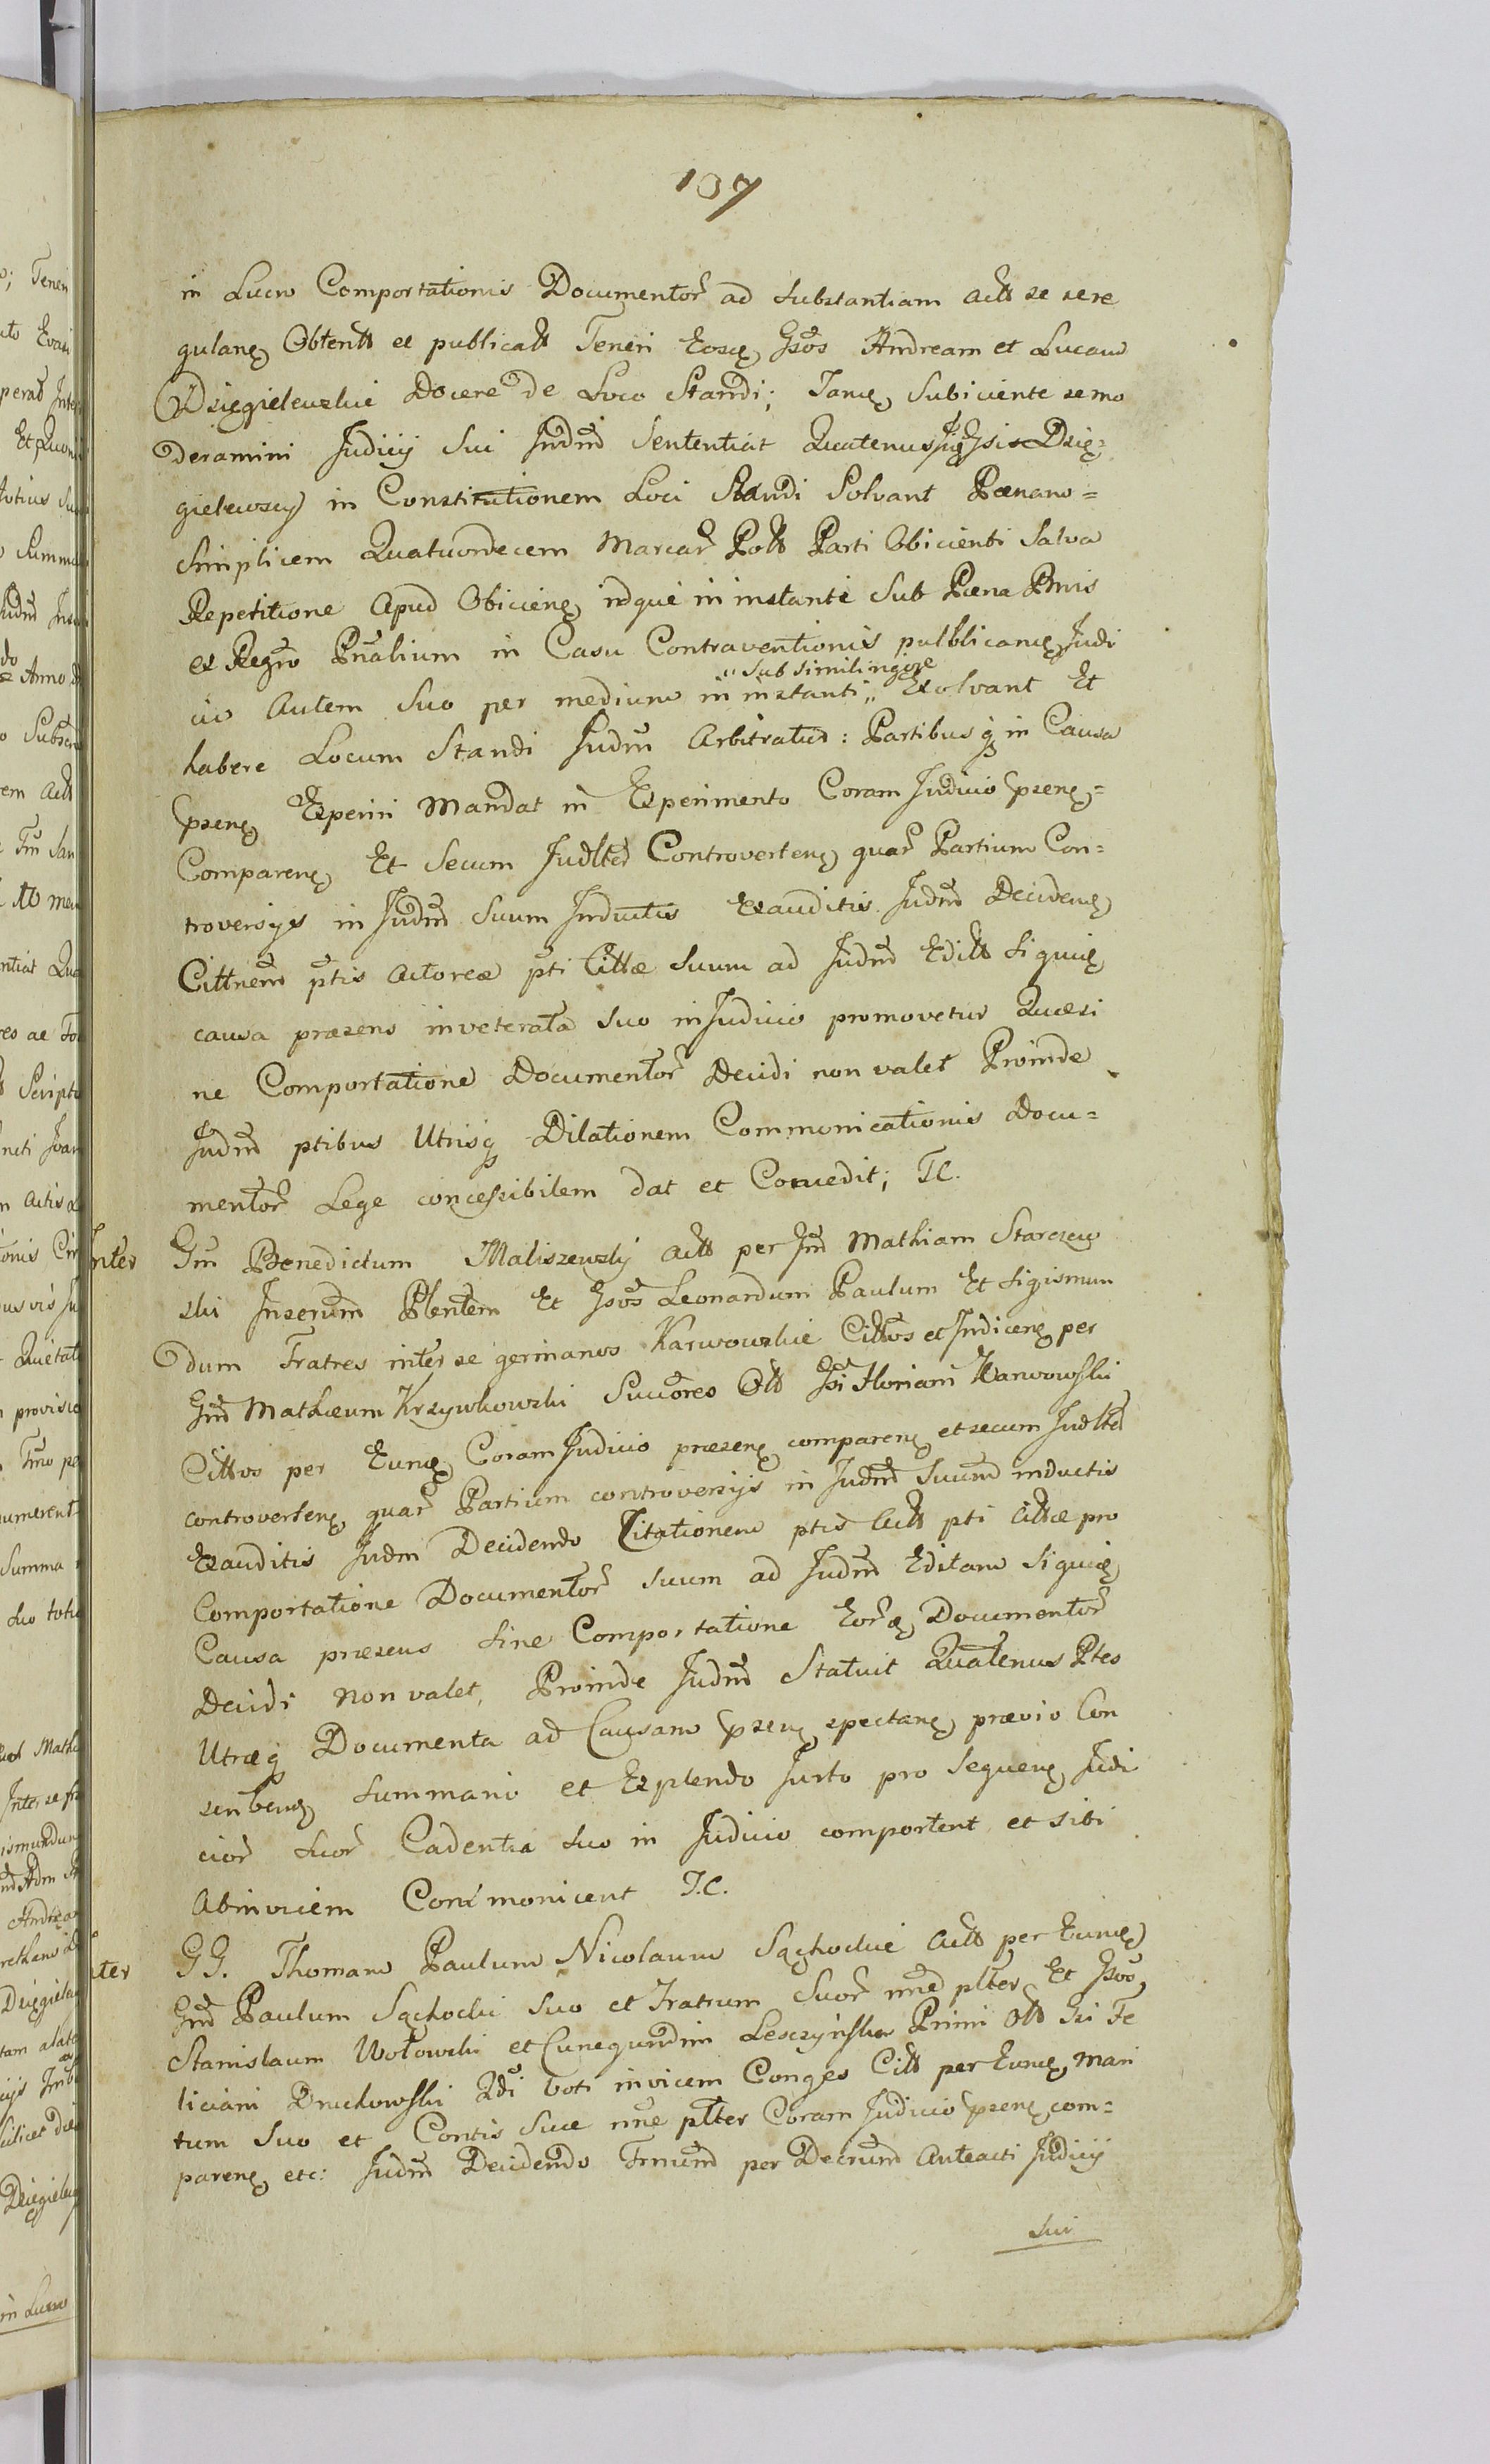 107
in Lucro Comportationis Documentor̃ ad substantiam actt se sere
gulanꝫ Obtentt et publicatt Teneri Eoscꝫ Gsos Andream et Lucam
Dzięgielewskie Docere de Loco Standi; Tancꝫ subiiciente se mo
deramini Judicij sui Judm̃ Sententiat Quatenus Gsis Dzię=
gielewscy in Constitutionem Loci Standi Solvant Pœnam=
Simplicem Quatuordecem Marcar̃ Poll Parti Obicienti Salva
Repetitione Apud Obicienꝫ idque in instanti sub Pœna Bnis
ex Regro Pñalium in Casu Contraventionis publicancꝫ Judi
„sub simili rigore
cio Autem Suo per medium in instanti „ Exolvant Et
habere Locum Standi Judm Arbitratur: Partibus qꝫ in Causa
pseñꝫ Experiri Mandat in Experimento Coram Judicio pseñꝫ=
Comparenꝫ Et Secum Judlter Controvertenꝫ quar̃ Partium Con=
troversijs in Judm̃ suum Inductis Exauditis Judm̃ Decidencꝫ
Cittnem ptis Actoreæ pti Cittæ suum ad Judm̃ Editt siquicꝫ
causa præsens inveterata suo in Judicio promovetur Quæsi
ne Comportatione Documentor̃ Decidi non valet Proinde
Judm̃ ptibus Utrisqꝫ Dilationem Communicationis Docu=
mentor̃ Lege concessibilem dat et Concedit; TC.
Inter Gm Benedictum Maliszewsky actt per Gm Mathiam Starczew
ski Inserum Plentem Et Gsos Leonardum Paulum Et Sigismun
dum Fratres inter se germanos Karwowskie Cittos et Indicenꝫ per
Gm Mathæum Krzywkowski Succores Ott Gsi Floriani Karwowski
Cittos per Euncꝫ Coram Judicio præsenꝫ comparenꝫ et secum Judlter
controvertenꝫ quar̃ Partium controversijs in Judm̃ suum inductis
Exauditis Judm Decidendo Citationem ptis Actt pti Cittæ pro
Comportatione Documentor̃ suum ad Judm̃ Editam siquicꝫ
Causa præsens sine Comportatione Eor̃cꝫ Documentor̃
Decidi non valet, Proinde Judm̃ Statuit Quatenus Ptes
Utræqꝫ Documenta ad Causam pseñꝫ spectanꝫ prævio Con
scribenꝫ Summario et Explendo Jurto pro sequenꝫ Judi
cior̃ suor̃ Cadentia suo in Judicio comportent et sibi
Abinvicem Communicent T.C.
Inter GG. Thomam Paulum Nicolaum Sąchockie Actt per Euncꝫ
Gm Paulum Sąchocki suo et Fratrum Suor̃ nñe plter Et Gsos
Stanislaum Wołowski et Cunegundim Lesczyńska Primi Ott Gsi Fe
liciani Druchowski 2di voti invicem Conges Citt per Euncꝫ mari
tum suo et Contis suæ nñe plter Coram Judicio pseñꝫ com=
parenꝫ etc: Judm̃ Decidendo Trmum per Decrum Anteacti Judicij
sui